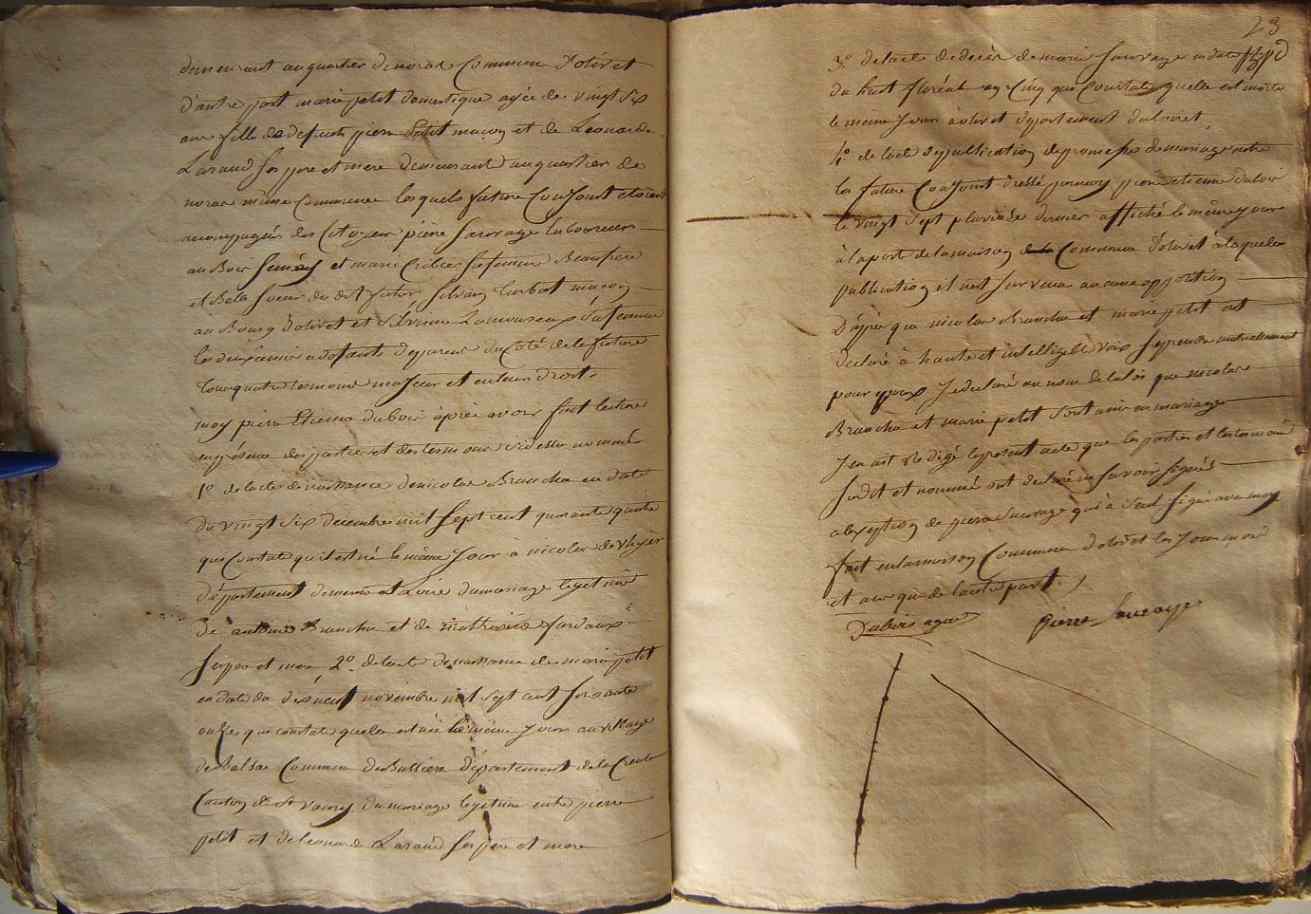 demeurant au quartier de noras Commune d'olivet
d'autre part marie petit domestique agée de vingt six
ans fille de defunts pierre petit maçon et de Leonarde
Laraud ses pere et mere demeurant au quartier de
noras même Commune lesquels futurs Conjoint etoient
acompagnés des Citoyens pierre Sauvage laboureur
au Bois et marie sa femme Beaufrere
et Bele Soeur du dit futur Silvain maçon
au Bourg d'olivet et Silvine Lamoureux sa femme
les deux amis du Coté de la future
tous quatre temoins majeurs et
moy pierre Etienne dubois après avoir fait lecture
en présence des parties et des temoins si dessus nommés
1º de lacte de naissance de nicolas Branchu en date
du vingt six decembre mil sept cent quarante quatre
qui Constate qu'il est né le même Jour à nicolas
département du mariage legetime
de antoine Branchu et de
ses pere et mere 2º de lacte de naissance de marie petit
en date du dixneuf novembre mil sept cent soixante
onze qui constate quelle est née le même Jour au village
de Balsac Commune de Bussiere département de la Creuse
Canton de St Vaury du mariage legetime entre pierre
petit et de leonarde Laraud ses pere et mere
23
3º de lacte de décès de marie Sauvage en date
du huit floréal an Cinq qui Constate quelle est morte
le même Jour à olivet département du loiret
4º de lacte de publication de promesses de mariage entre
les futurs Conjoint dressé par moy pierre etienne dubois
le vingt sept pluviôse dernier affiché le même jour
à la porte de la maison Commune d'olivet à laquelle
publication il n'est survenu aucune opposition
D'après que nicolas Branchu et marie petit ont
declaré à haute et intelligible voix se prendre mutuellement
pour epoux Je declaré au nom de la loi que nicolas
Branchu et marie petit sont unis en mariage
J'en ait rédigé le present acte que les parties et les temoins
susdit et nommé ont declaré ne savoir signés
a lexeption de pierre Sauvage qui à seul signé avec moy
fait en la maison Commune d'olivet les Jours mois
et ans que de lautre part
Dubois agent pierre Sauvage